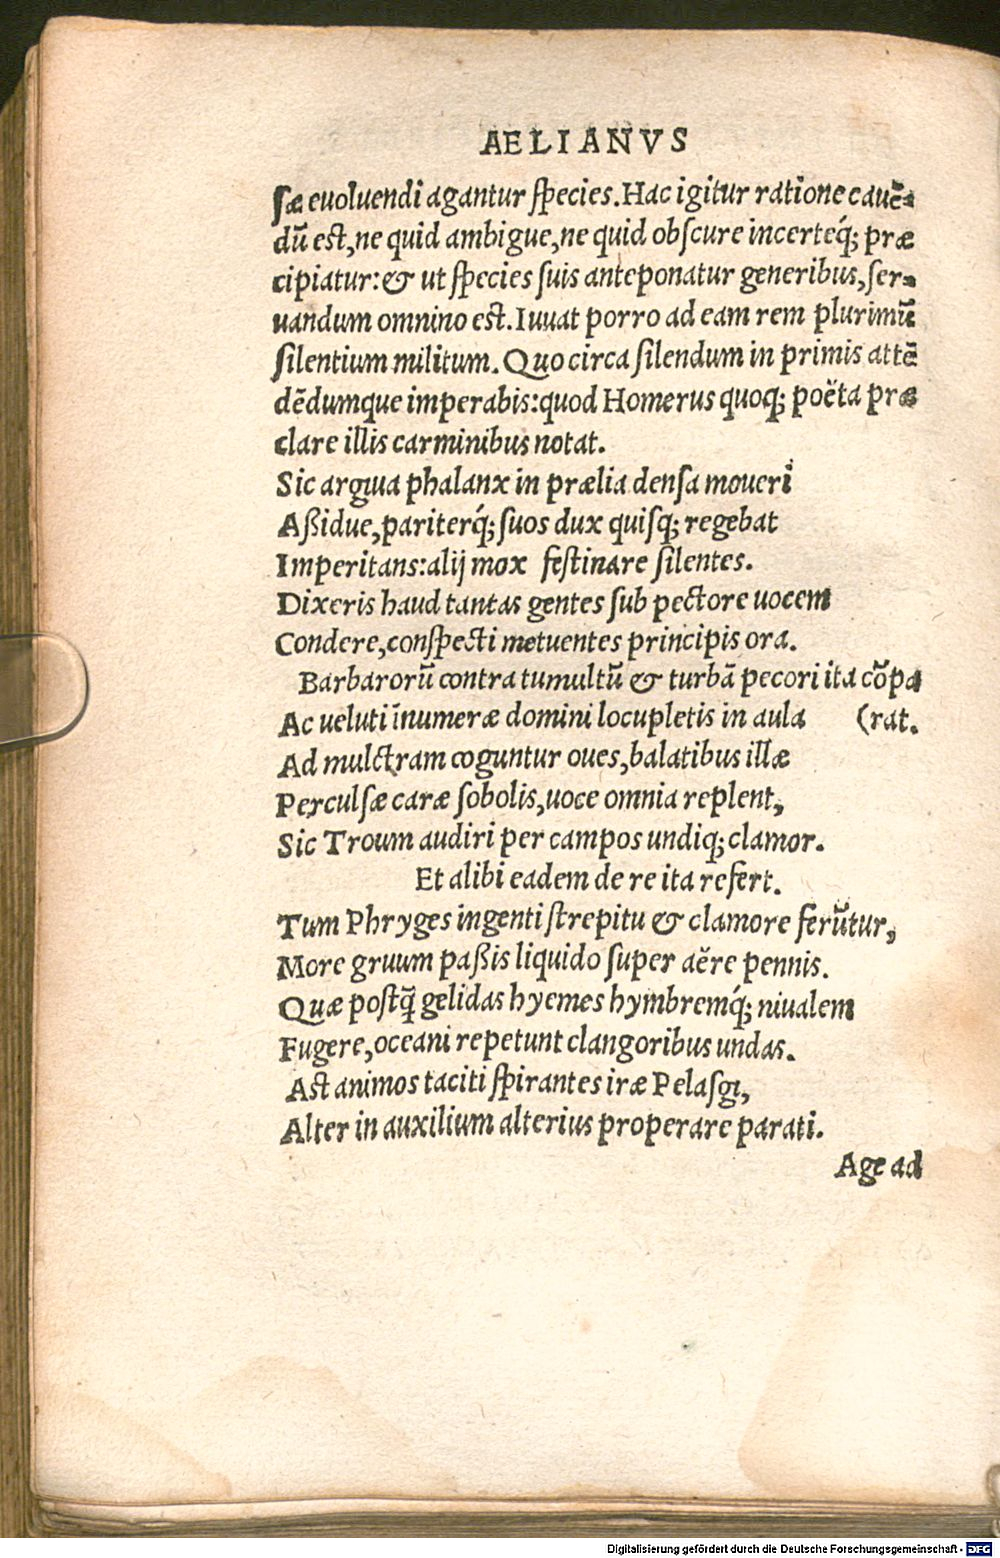 AELIANVS
sæ euoluendi agantur species. Hac igitur ratione cauẽ-
dũ est, ne quid ambigue, ne quid obscure incerteq́; præ
cipiatur: & ut species suis anteponatur generibus, ser-
uandum omnino est. Iuuat porro ad eam rem plurimũ
silentium militum. Quo circa silendum in primis attẽ
dẽdumque imperabis: quod Homerus quoq; poëta præ
clare illis carminibus notat.
Sic argiua phalanx in prælia densa moueri
Aßidue, pariterq́; suos dux quisq; regebat
Imperitans: alij mox festinare silentes.
Dixeris haud tantas gentes sub pectore uocem
Condere, conspecti metuentes principis ora.
Barbarorũ contra tumultũ & turbã pecori ita cõpa
Ac ueluti ĩnumeræ domini locupletis in aula (rat.
Ad mulctram coguntur oues, balatibus illæ
Perculsæ caræ sobolis, uoce omnia replent,
Sic Troum audiri per campos undiq; clamor.
Et alibi eadem de re ita refert.
Tum Phryges ingenti strepitu & clamore ferũtur,
More gruum paßis liquido super aëre pennis.
Quæ postq̃ gelidas hyemes hymbremq́; niualem
Fugere, oceani repetunt clangoribus undas.
Ast animos taciti spirantes iræ Pelasgi,
Alter in auxilium alterius properare parati.
Age ad
Digitalisierung gefördert durch die Deutsche Forschungsgemeinschaft - DFG